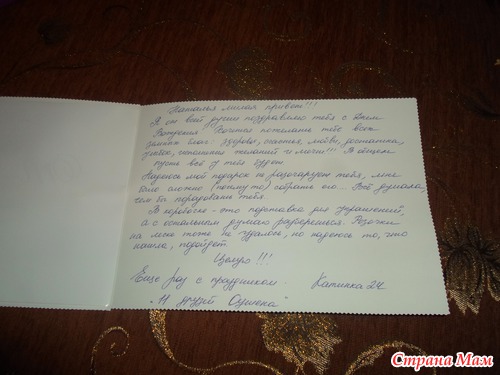 Наталья милая привет!!!
Я от всей души поздравляю тебя с Днем
Рождения! Хочется пожелать тебе всех
земных благ: здоровья, счастья, любви, достатка,
успехов, исполнения желаний и мечты!!! В общем
пусть всё у тебя будет.
Надеюсь мой подарок не разочарует тебя, мне
было сложно (почему то) собрать его... Всё думала,
чем бы порадовать тебя.
В коробочке - это подставка для украшений,
а с остальным думаю разберешься. Резочки
на леске тоже не удалось, но надеюсь то, что
нашла, подойдет.
Целую!!!
Еще раз с праздником.
Катинка24
"11 друзей Оушена"
Страна Мам